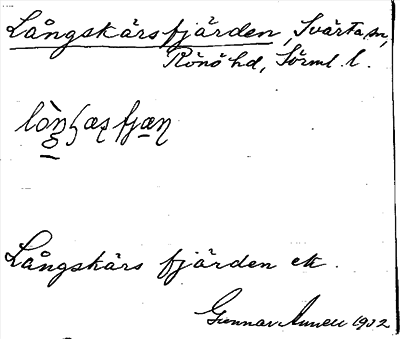 Långskärsfjärden, Svärta sn,
Rönö hd, Sörml. l.
Långskärs fjärden ek.
Gunnar 1932